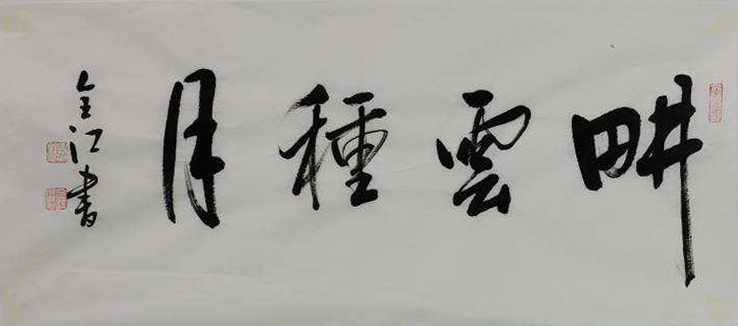 畊雲種月
全江書